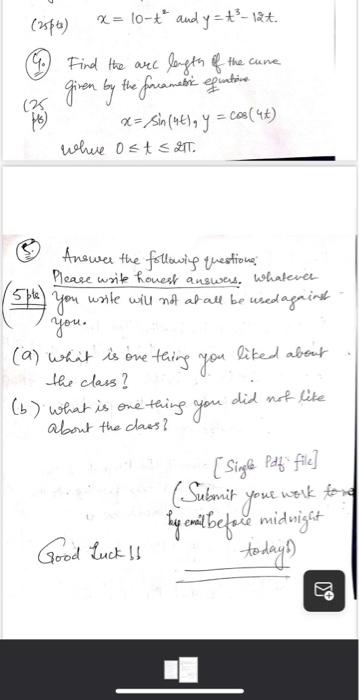 (25pts) x = 10-t² and y = t³-12t.
4. Find the arc length of the curve
given by the parametric equations
(25 pts)
x = sin(4t), y = cos(4t)
where 0 ≤ t ≤ 2π.
5. Answer the following questions.
Please write honest answers. Whatever
(5 pts) you write will not at all be used against
you.
(a) what is one thing you liked about
the class?
(b) what is one thing you did not like
about the class?
[Single Pdf file]
(Submit your work
by email before midnight
Good Luck!! today!)